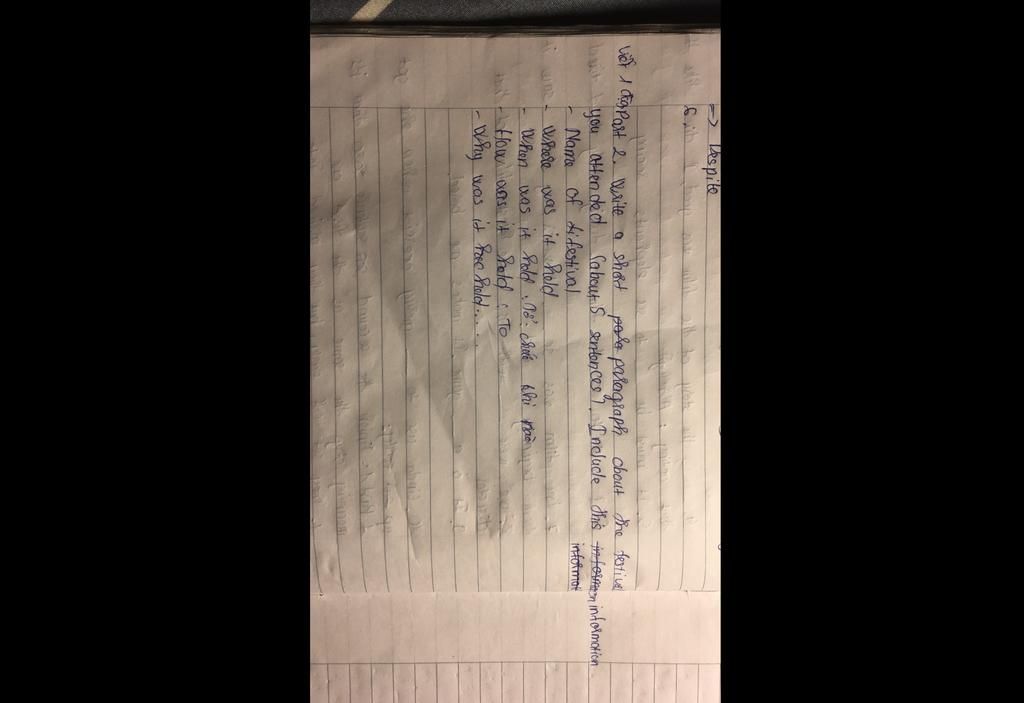 => Despite
6.
Part 2. Write a short paragraph about the festival
you attended (about 5 sentences). Include this information
- Name of festival
- Where was it held
- When was it held : Tổ chức khi nào
- How was it held : To
- Why was it held....